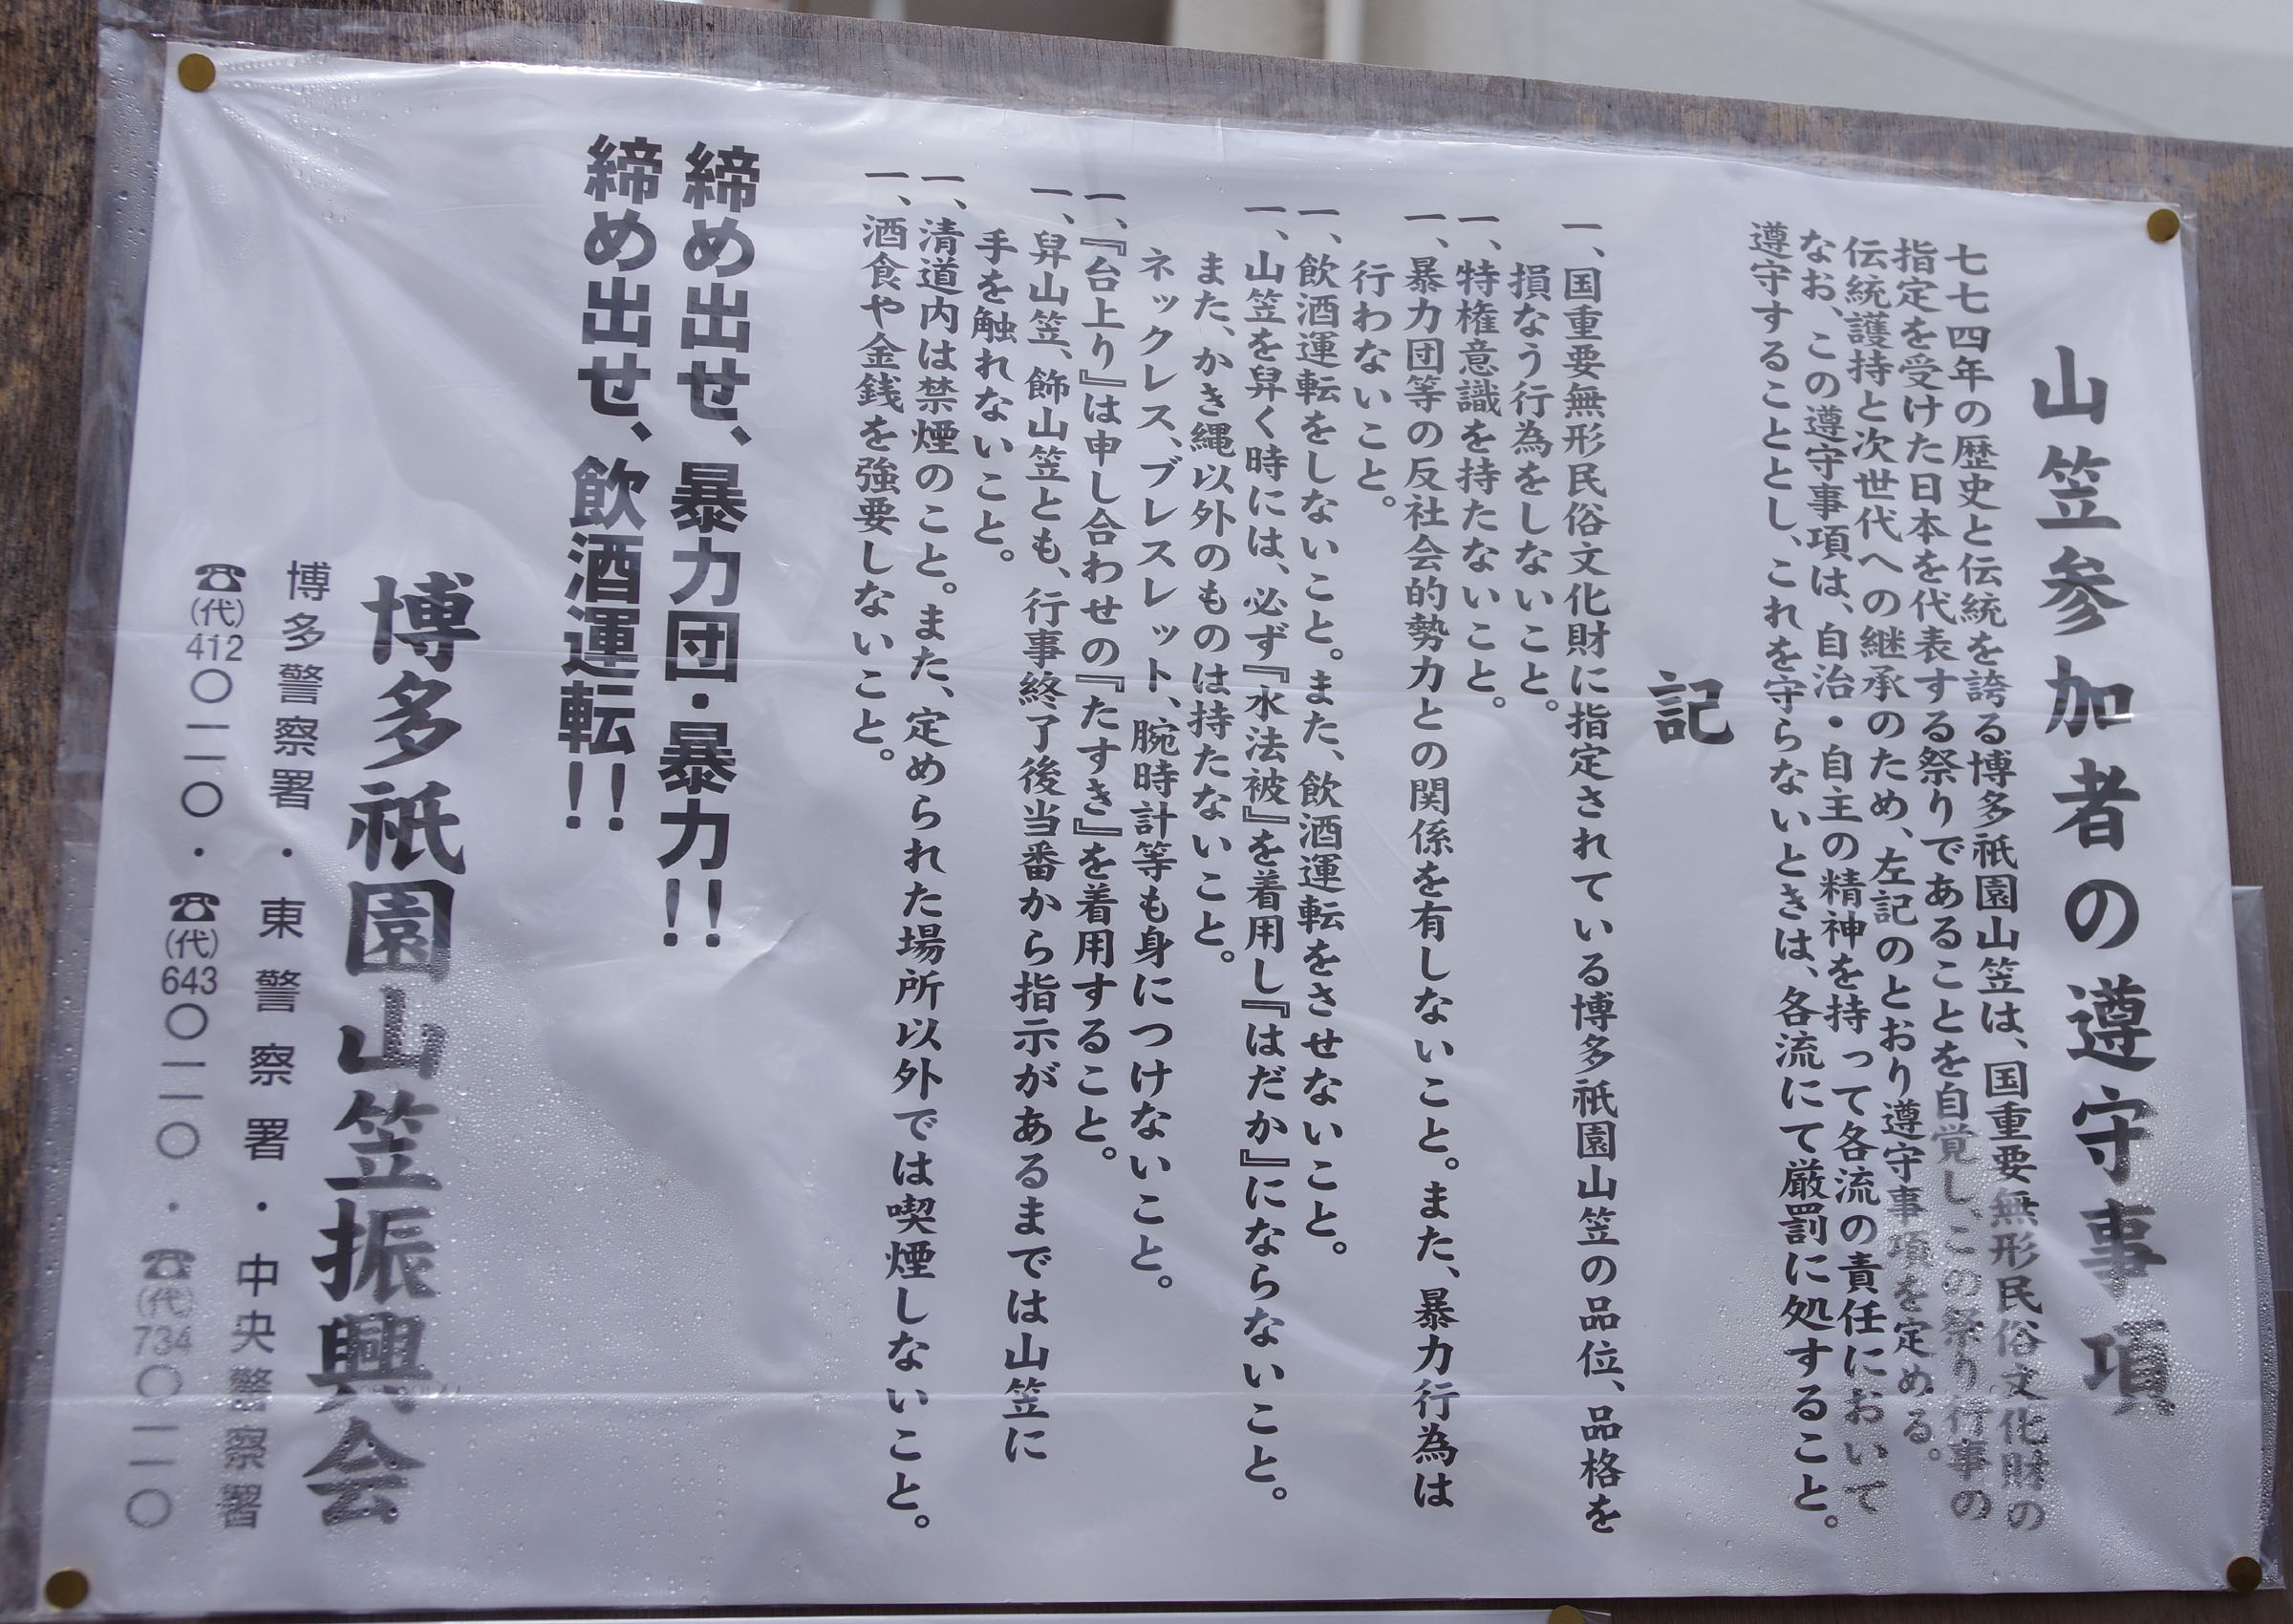 山笠参加者の遵守事項
七七四年の歴史と伝統を誇る博多祇園山笠は、国重要無形民俗文化財の
指定を受けた日本を代表する祭りであることを自覚し、この祭り行事の
伝統護持と次世代への継承のため、左記のとおり遵守事項を定める。
なお、この遵守事項は、自治・自主の精神を持って各流の責任において
遵守することとし、これを守らないときは、各流にて厳罰に処すること。
記
一、国重要無形民俗文化財に指定されている博多祇園山笠の品位、品格を
損なう行為をしないこと。
一、特権意識を持たないこと。
一、暴力団等の反社会的勢力との関係を有しないこと。また、暴力行為は
行わないこと。
一、飲酒運転をしないこと。また、飲酒運転をさせないこと。
一、山笠を舁く時には、必ず『水法被』を着用し『はだか』にならないこと。
また、かき縄以外のものは持たないこと。
ネックレス、ブレスレット、腕時計等も身につけないこと。
一、『台上り』は申し合わせの『たすき』を着用すること。
一、舁山笠、飾山笠とも、行事終了後当番から指示があるまでは山笠に
手を触れないこと。
一、清道内は禁煙のこと。また、定められた場所以外では喫煙しないこと。
一、酒食や金銭を強要しないこと。
締め出せ、暴力団・暴力!!
締め出せ、飲酒運転!!
博多祇園山笠振興会
博多警察署・東警察署・中央警察署
☎(代)412〇一一〇・☎(代)643〇一一〇・☎(代)734〇一一〇